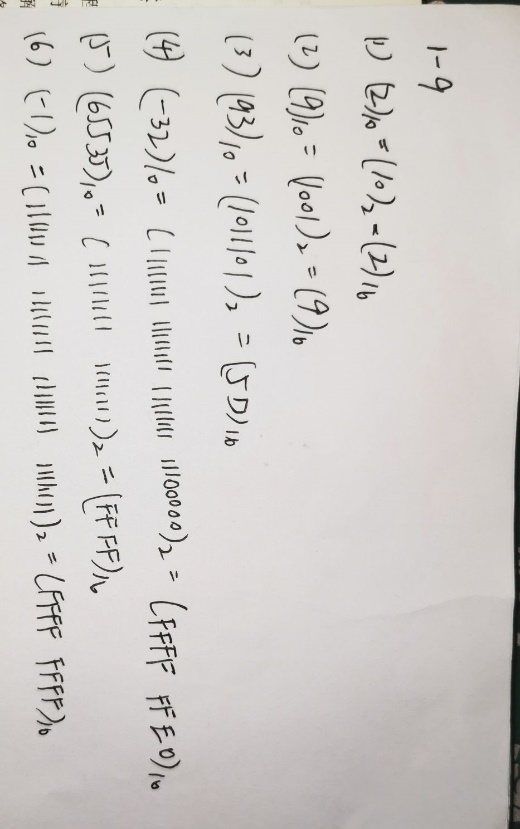 1-9
(1) (2)₁₀ = (10)₂ = (2)₁₆
(2) (9)₁₀ = (1001)₂ = (9)₁₆
(3) (93)₁₀ = (1011101)₂ = (5D)₁₆
(4) (-32)₁₀ = (11111111 11111111 11111111 11100000)₂ = (FFFF FFE0)₁₆
(5) (65535)₁₀ = (11111111 11111111)₂ = (FFFF)₁₆
(6) (-1)₁₀ = (11111111 11111111 11111111 11111111)₂ = (FFFF FFFF)₁₆